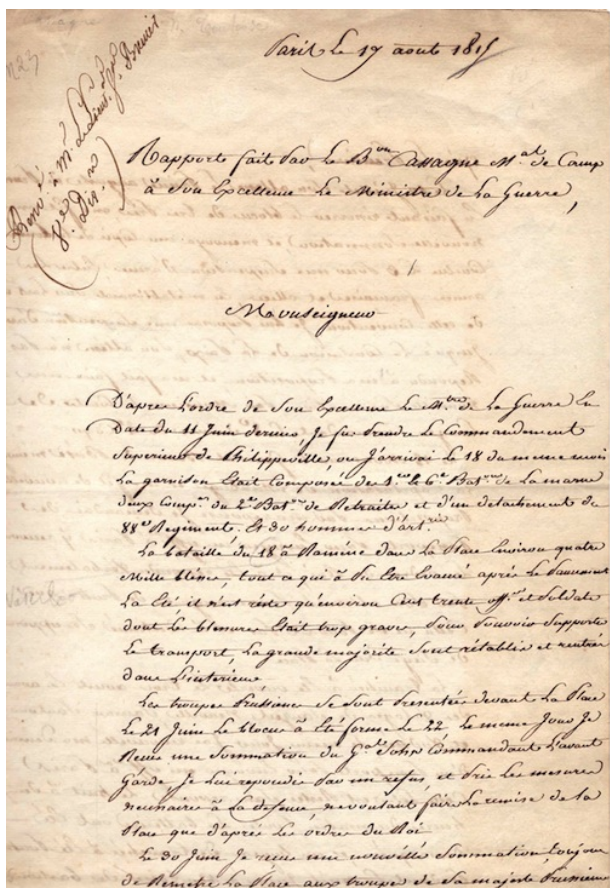 Paris le 19 aout 1815
Renvoi à Mr. Le Lieut. Gal. Brenier
8e. Dison
Rapporte fait par Le Bon Cassagne Mal de Camp
à Son Excellence Le Ministre de La Guerre,
Monseigneur
D'apres L'ordre de Son Excellence Le Mtre de La Guerre En
Date du 11 Juin dernier, Je fus prendre Le Commandement
Superieur de Philippeville, ou J'arrivai Le 18 du meme mois
La garnison Etait Composée des 1er et 6e Batons de La marne
deux Compies du 2e Baton de Retraites et d'un detachement du
88e Regiments. Et 30 hommes d'artrie
La bataille du 18 à Raméné dans La Place Environ quatre
Mille blésés, tout ce qui à Pu Etre Evacué après Le
La Eté, il n'est résté qu'environ Cent trente offrs et Soldats
dont Les blesures Etait trop grave, Pour Pouvoir Supporte
Le transport, La grande majorité Sont rétablis et rentrés
dans L'interieur
Les troupes Prussienes Se sont Presentées devant La Place
Le 21 Juin Le blocus à Eté formé Le 22. Le meme Jour Je
Recus une Sommation du Gal Commandant L'avant
Garde Je Lui repondis par un refus, et Pris Les mesures
necessaire à La defense, ne voulant faire La remise de la
Place que d'après Les ordres du Roi
Le 30 Juin Je recus une nouvelle Sommation toujours
de Remetre La Place aux troupes de Sa majesté Prussiene